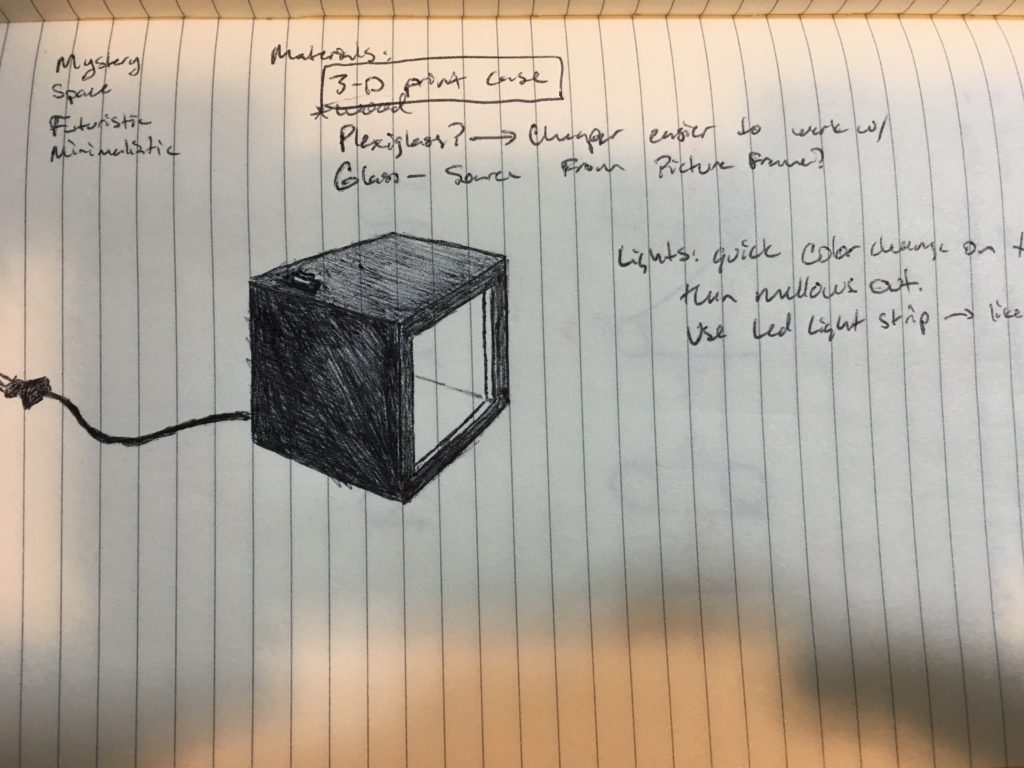 Mystery
Space
Futuristic
Minimalistic
Materials:
3-D print case
*wood
Plexiglass? → Cheaper easier to work w/
Glass - Source From Picture Frame?
Lights: quick color change on
then mellows out.
Use Led Light Strip → like